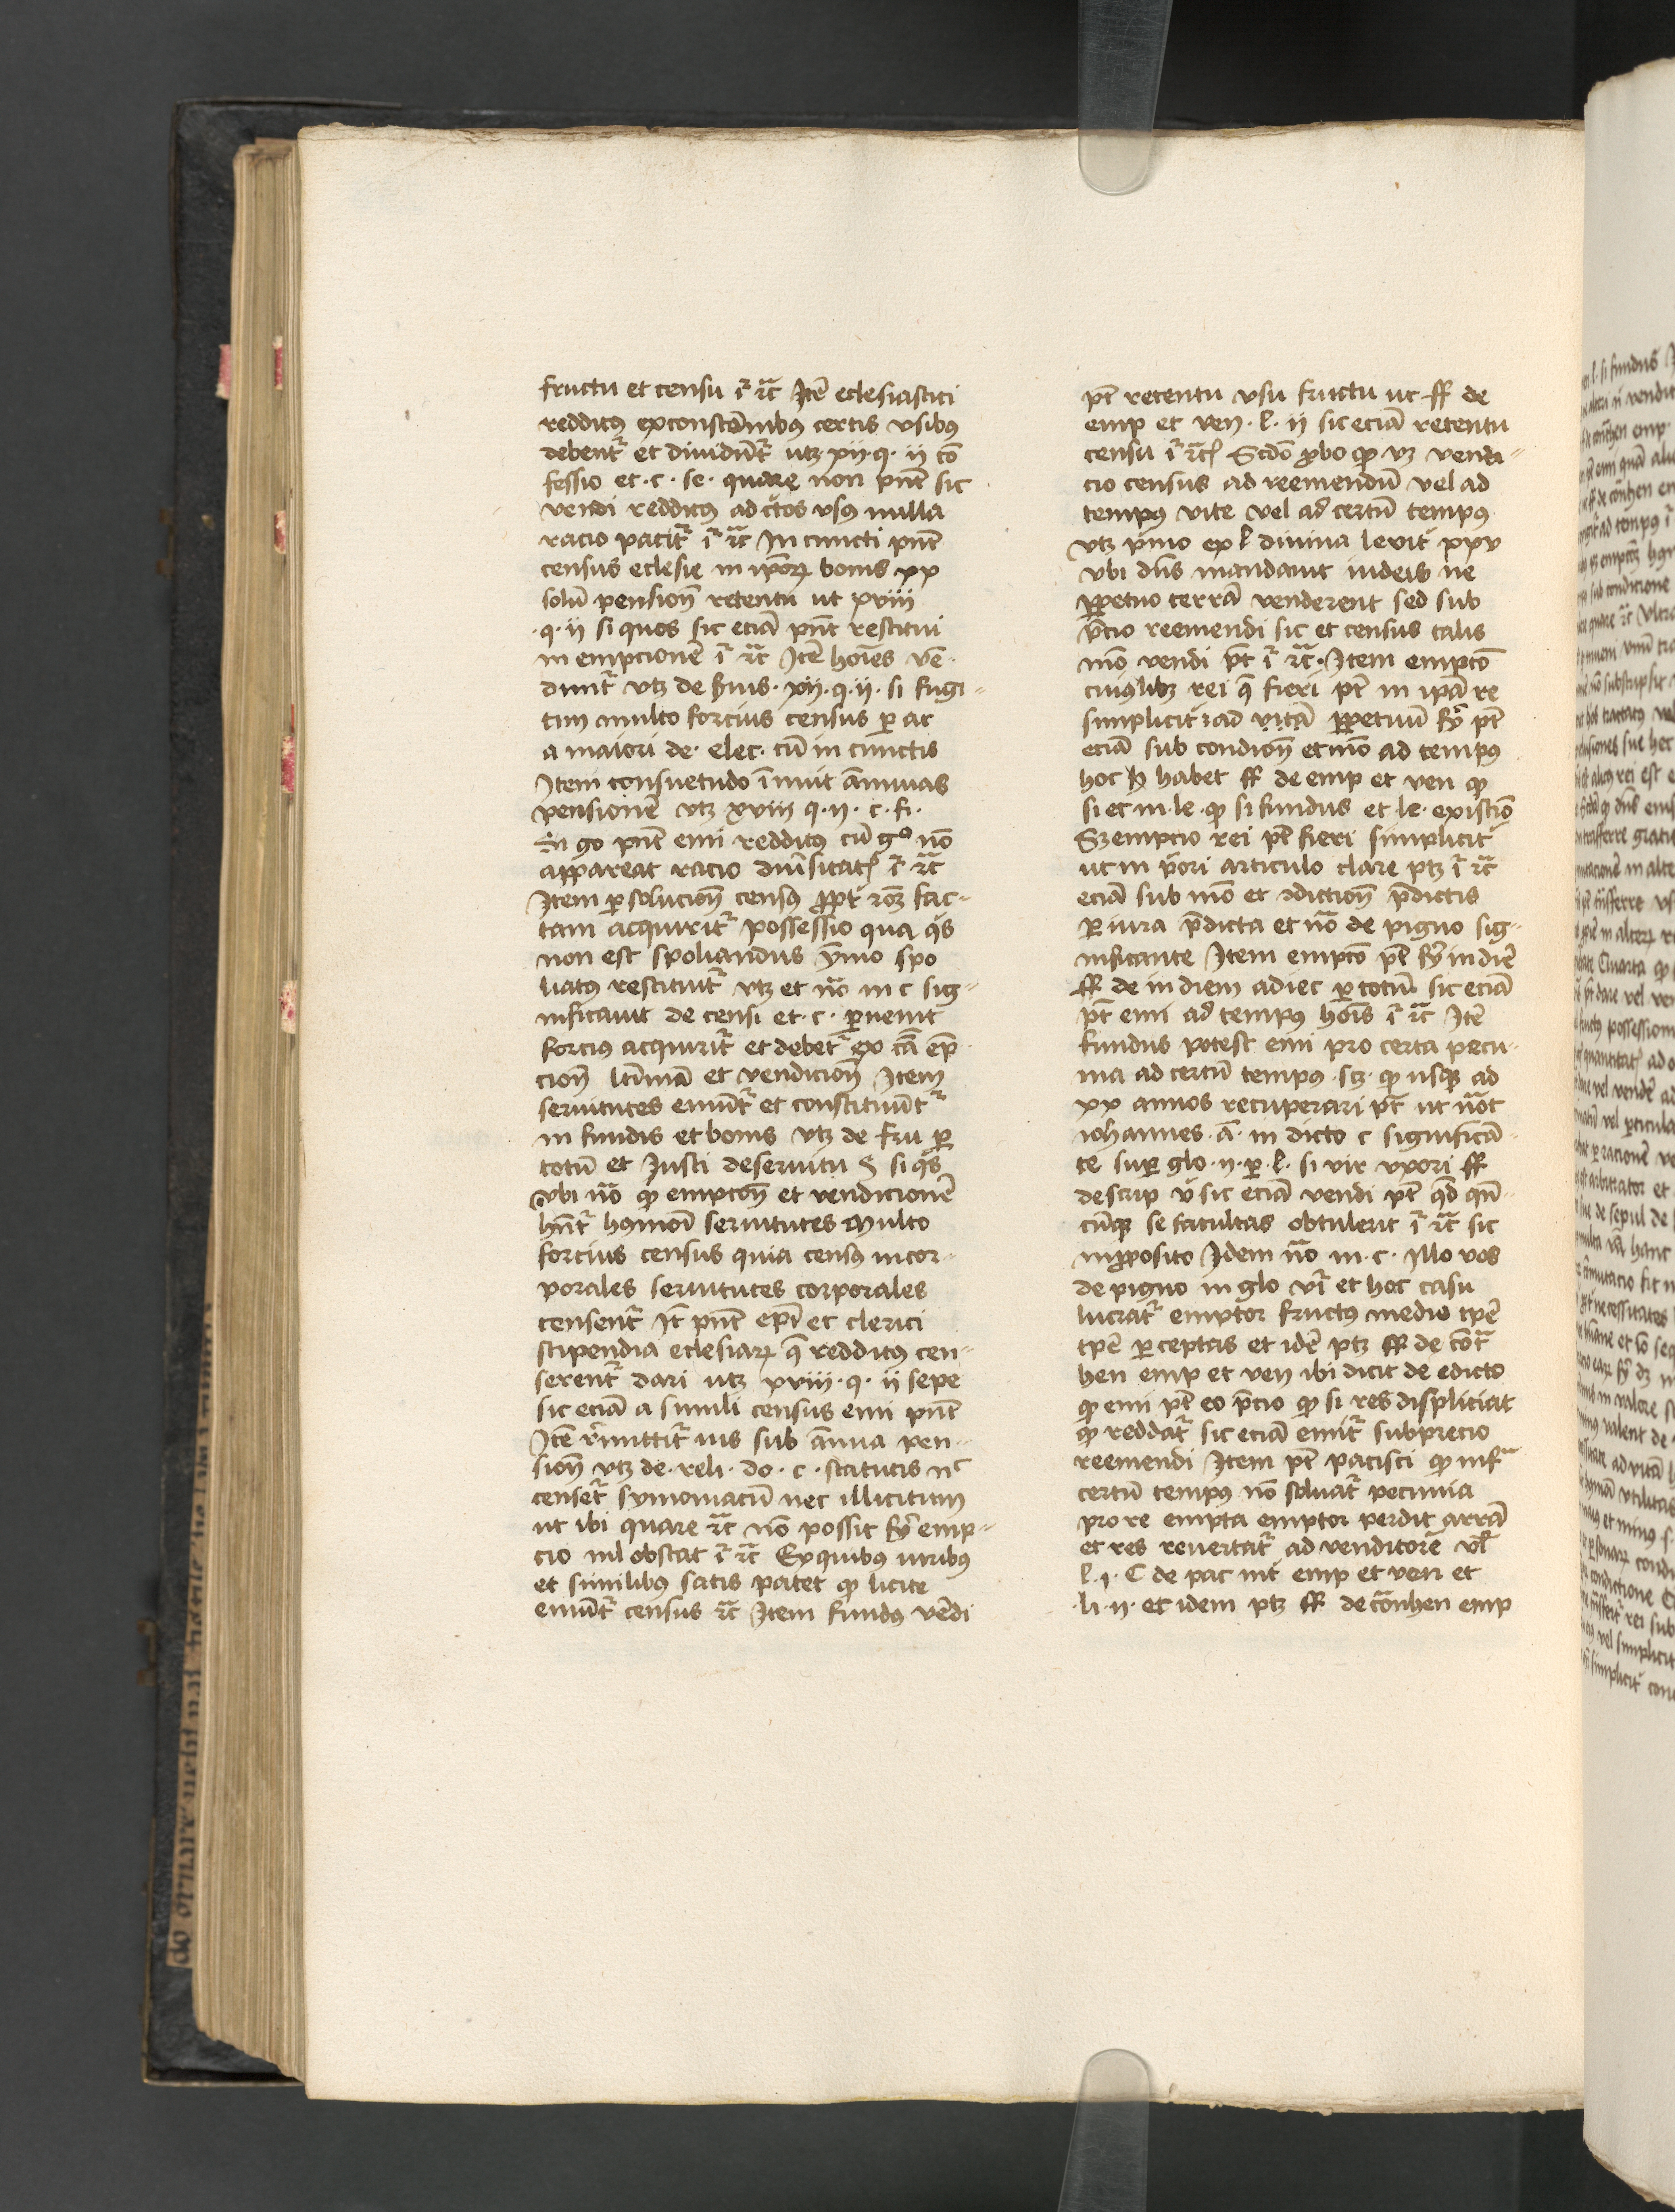 fructu et censu iͬ ꝛc̄ Itē eclesiastici
redditꝯ ex constātibꝯ certis vsibꝯ
debentͬ et diuidūtͬ utꝫ xii · q · ii cō
fessio et · c · se · quare non pn̄t sic
vendi redditꝯ ad c̄tos vsꝯ nulla
racio patitͬ iͬ ꝛc̄ In cuncti pn̄t
census eclesie in ip̄oꝝ bonis xx
solū pension̄ retentu ut xviii
· q · ii si quos sic eciā pn̄t restitui
in empcionē iͬ ꝛc̄ Itē hoīes vē
duntͬ vtꝫ de ẜuis · xii · q · ii · si fugi
tiui multo forcius census ꝑ ar
a maiori de · elec · cū in cunctis
Item consuetudo īmuit ānuas
pensionē vtꝫ xviii q · ii · c · fi ·
Si go pn̄t emi redditꝯ cū gº nō
appareat racio diu̾sitatꝭ iͬ ꝛc̄
Item ꝑ solucion̄ censꝯ ꝓpt̾ rōꝫ fac
tam acquiritͬ possessio qua qͥs
non est spoliandus ymo spo
liatꝯ restituitͬ vtꝫ et nō in c sig
nificauit de censi et · c · ꝑuenit
forcius acquiritͬ et debetͬ ex cā ēp
cion̄ ltīmā et vendicion̄ Item
seruitutes emūtͬ et constituūtͬ
in fundis et bonis vtꝫ de fru ꝑ
totū et Iusti deseruitu § si qͥs
vbi nō ꝙ empcōn̄ et vendicionē
hn̄tͬ hꝯmōi seruitutes Multo
forcius census quia censꝯ incor
porales seruitutes corporales
censentͬ It̄ pn̄t epī et clerici
stipendia eclesiaꝝ q̄ redditꝯ cen
serentͬ dari utꝫ xviii · q · ii sepe
sic eciā a simili census emi pn̄t
Itē r̾mittitͬ ius sub ānua pen
sion̄ vtꝫ de · reli · do · c · statutis nᶜ
censetͬ symoniacū nec illicitum
ut ibi quare ꝛc̄ nō possit fy̾ emp
cio nil obstat iͬ ꝛc̄ Ex quibꝯ iuribꝯ
et similibꝯ satis patet ꝙ licite
emūtͬ census ꝛc̄ Item fundꝯ vēdi
pt̄ retentu vsu fructu ut ff de
emp et ven · l · ii sic eciā retentu
censu iͬ ꝛc̄ꝭ Scd̄o ꝓbo ꝙ vꝫ vendi
cio census ad reemendū vel ad
tempꝯ vite vel ad certū tempꝯ
vtꝫ pͥmo ex l diuina leuit̾ xxv
vbi dn̄s mandauit iudeis ne
ꝑpetuo terrā venderent sed sub
p̄cio reemendi sic et census talis
mō vendi pt̄ iͬ ꝛc̄ · Item empcō
cuiꝯlibꝫ rei q̄ fieri pt̄ in ip̄a re
simplicit̾ ad vitā ꝑpetuū fy̾ pt̄
eciā sub condicion̄ et mō ad tempꝯ
hoc habet ff de emp et ven ꝙ
si et in · le · ꝙ si fundus et le · existiō
Sꝫ empcio rei pt̄ fieri simplicit̾
ut in p̄ori articulo clare ptꝫ iͬ ꝛc̄
eciā sub mō et ꝯdiction̄ p̄dictis
ꝑ iura p̄dicta et nō de pigno sig
nificante Item empcō pt̄ fy̾ in diē
ff de in diem adiec ꝑ totū sic eciā
pt̄ emi ad tempꝯ hoīs iͬ ꝛc̄ Itē
fundus potest emi pro certa pecu
nia ad certū tempꝯ · scꝫ · ꝙ usqꝫ ad
xx annos recuperari pt̄ ut nōt
iohannes · ā · in dicto c significā
te sup̱ glo · ii · ꝑ · l · si vir vxori ff
descrip v̾ sic eciā vendi pt̄ qd̄ qn̄
cūqꝫ se facultas obtulerit iͬ ꝛc̄ sic
in ꝓposito Idem nō in · c · illo vos
de pigno in glo vī et hoc casu
lucratͬ emptor fructꝯ medio tꝑe
tꝑe ꝑceptas et idē ptꝫ ff de cōtͣ
hen emp et ven ibi dicit de edicto
ꝙ emi pt̄ eo p̄cio ꝙ si res displiciat
ꝙ reddatͬ sic eciā emitͬ subprecio
reemendi Item pt̄ pacisci ꝙ infͣ
certū tempꝯ nō soluatͬ pecunia
pro re empta emptor perdit arrā
et res reuertatͬ ad venditorē vl̄
l · i · C de pac int̾ emp et ven et
· li · ii · et idem ptꝫ ff de cōnhen emp